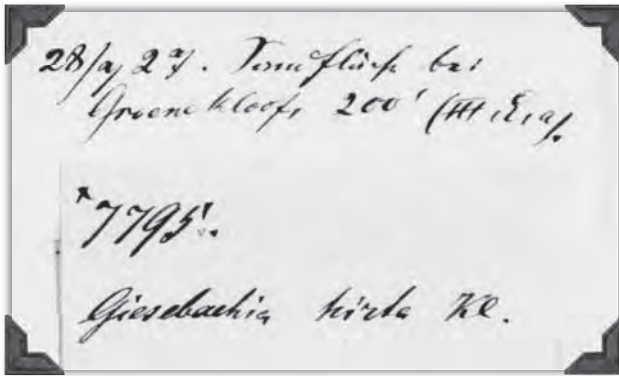 28/9, 27. Sandfläche bei
Groenekloof, 200' (III, E, a).
7795.
Giesebachia hirta Kl.